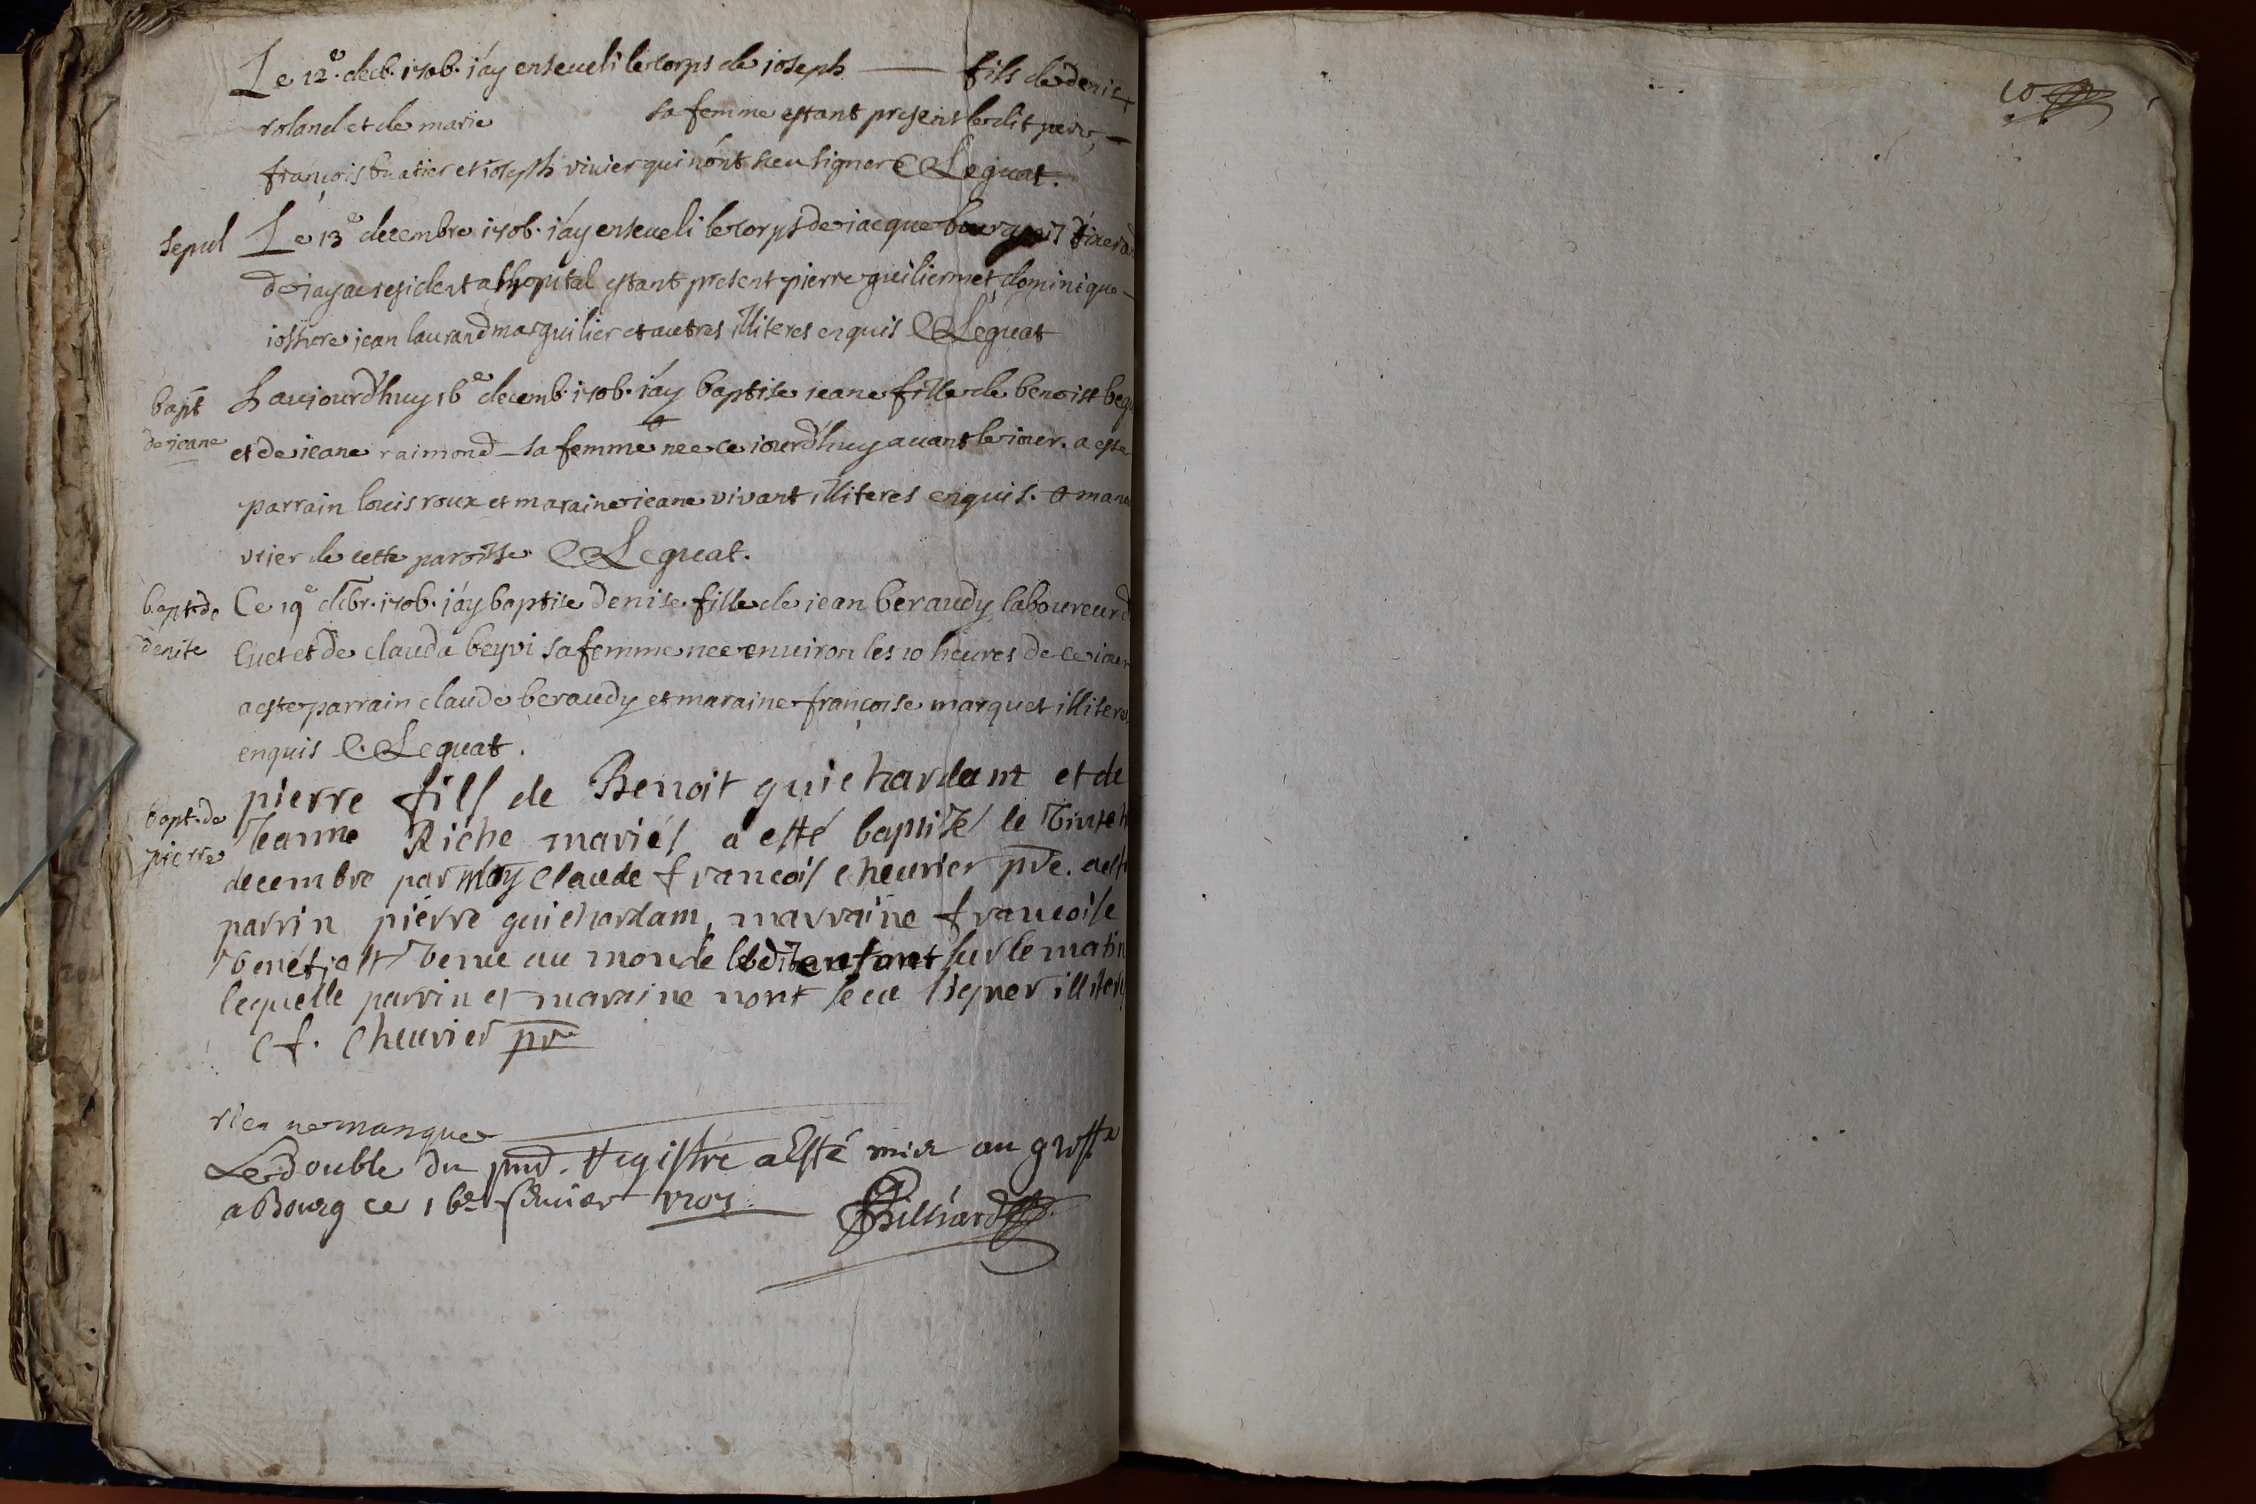 Le 12e. decb. 1706. j'ay enseveli le corps de joseph —— fils de denis
roland et de marie sa femme estant present ledit pere,
françois buatier et joseph vivier qui n'ont sceu signer C Leguat.
sepul Le 13e decembre 1706. j'ay enseveli le corps de jacque
de jayac resident a lhopital estant present pierre guiliermet, dominique
jean laurand marguilier et autres illiteres enquis C Leguat
bapt
de jeane
aujourdhuy 16e decemb. 1706. j'ay baptise jeane fille de benoist
et de jeane raimond — sa femme nee ce jourdhuy avant le jour. a este
parrain louis roux et maraine jeane vivant illiteres enquis. manou
vrier de cette paroisse C Leguat.
bapt de
denise
Ce 19e dcbr. 1706. j'ay baptise denise fille de jean beraudy laboureur d
luet et de claude beyvi sa femme nee environ les 10 heures de ce jour
a este parrain claude beraudy et maraine françoise marquet illiteres
enquis C. Leguat.
bapt. de
pierre
pierre fils de Benoit guichardant et de
Jeanne Riche mariés a esté baptisé le
decembre par moy claude francois chevrier pre. a esté
parrin pierre guichardam, marraine francoise
venu au monde ledit enfant sur le matin
lequelle parrin et maraine nont sceu signer illiteres
C f. Chevrier pre
rien ne manque
Le double du pnt. Registre a Esté mis au greffe
a Bourg ce 16e fevrier 1707. Billiard
10